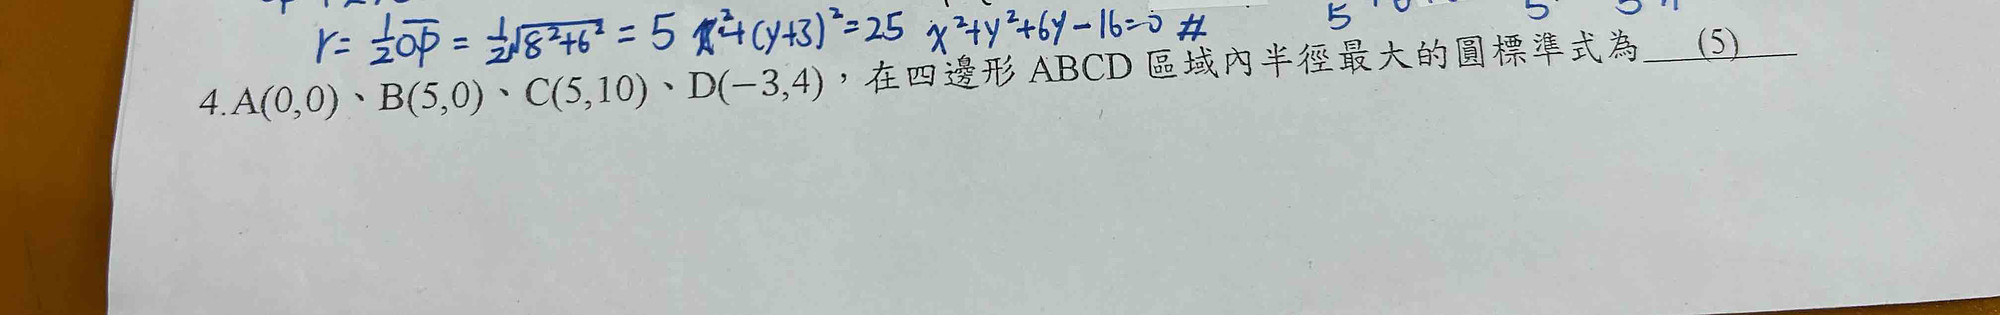 r = 1/2 OP = 1/2 √(8²+6²) = 5 x²+(y+3)²=25 x²+y²+6y-16=0 #
4.A(0,0)、B(5,0)、C(5,10)、D(-3,4)，在四邊形 ABCD 區域內半徑最大的圓標準式為 (5)